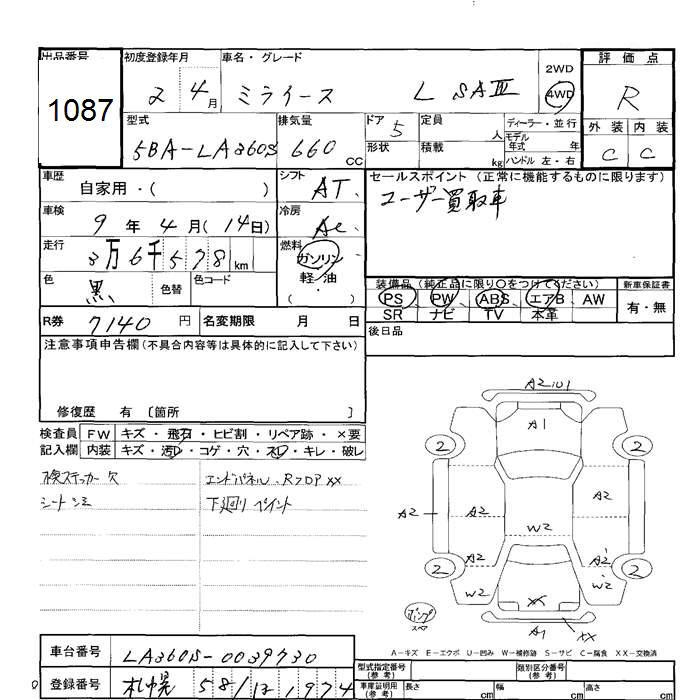 出品番号 初度登録年月 車名・グレード 2WD 評価点
1087 2 4月 ミライース L SAⅢ 4WD R
型式 排気量 ドア 定員 ディーラー・並行 外装 内装
5BA-LA360S 660 CC 5 人 モデル年式 年 C C
形状 積載 kg ハンドル 左・右
車歴 自家用・( ) シフト AT. セールスポイント (正常に機能するものに限ります)
車検 9年 4月(14日) 冷房 Ac ユーザー買取車
走行 3万6千578km 燃料 ガソリン
軽・油
( ・ )
色 黒 色替 色コード 装備品(純正品に限り〇をつけてください) 新車保証書
PS PW ABS エアB AW 有・無
SR ナビ TV 本革
R券 7140円 名変期限 月 日 後日品
注意事項申告欄(不具合内容等は具体的に記入して下さい)
修復歴 有 〔箇所 〕
検査員 FW キズ・飛石・ヒビ割・リペア跡・×要
記入欄 内装 キズ・汚レ・コゲ・穴・スレ・キレ・破レ
検ステッカー欠 エンドパネル、RフロアXX
シートシミ 下廻りペイント
A2 U1
A1
2 2
A2 A2 A2
W2
A2 A2
2 2
W2 W2
XX
A1 XX
A-キズ E-エクボ U-凹み W-補修跡 S-サビ C-腐食 XX-交換済
車台番号 LA360S-0039730 型式指定番号(参考) 類別区分番号(参考)
登録番号 札幌 581 1974 車庫証明用(参考) 長さ cm 幅 cm 高さ cm